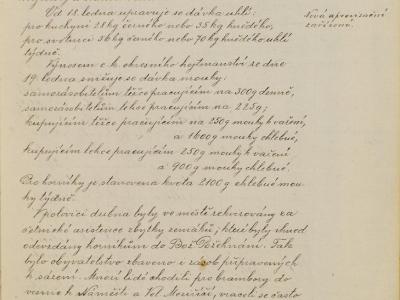 Od 18. ledna upravuje se dávka uhlí:
pro kuchyni 25 kg černého nebo 35 kg hnědého,
pro světnici 56 kg černého nebo 70 kg hnědého uhlí
týdně.
Nová aprovisační
nařízení.
Výnosem c. k. okresního hejtmanství ze dne
19. ledna snižuje se dávka mouky:
samozásobitelům těžce pracujícím na 300 g denně,
samozásobitelům lehce pracujícím na 225 g;
kupujícím těžce pracujícím na 250 g mouky k vaření,
a 1600 g mouky chlebné,
kupujícím lehce pracujícím 250 g mouky k vaření
a 900 g mouky chlebné.
Pro horníky je stanovena kvota 2100 g chlebné mou-
ky týdně.
V polovici dubna byly ve městě rekvirovány za
četnické asistence zbytky zemáků, které byly ihned
odevzdány horníkům do Zbýšova
Tak
bylo obyvatelstvo zbaveno i zásob připravených
k sázení. Mnozí lidé chodili pro brambory do
vesnic k Náměšti a Vel. Meziříčí, vraceli se často